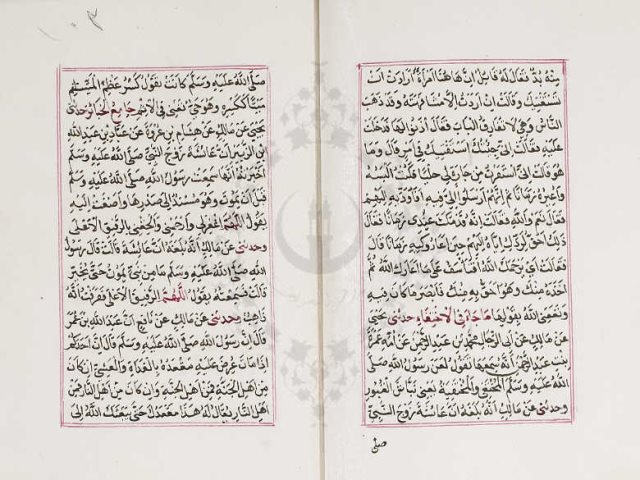 منه بد فقال له قائل ان هاهنا امرأة ارادت ان
تستفتيك وقالت ان اردت الا مشافهته وقد ذهب
الناس وهي لا تفارق الباب فقال ائذنوا لها فدخلت
عليه فقالت اني جئتك استفتيك في امر قال وما
هو قالت اني استعرت من جارة لي حليا فكنت البسه
واعيره زمانا ثم انهم ارسلوا الي فيه افاؤديه اليهم
فقال نعم والله فقالت انه قد مكث عندي زمانا فقال
ذلك احق لردك اياه اليهم حين اعاروكيه زمانا قال
فقالت اي يرحمك الله افتأسف على ما اعارك الله ثم
اخذه منك وهو احق به منك فابصر ما كان فيه
ونفعه الله بقولها ما جاء في الاختفاء حدثني يحيى
عن مالك عن ابي الرجال محمد بن عبد الرحمن عن امه عمرة
بنت عبد الرحمن انه سمعها تقول لعن رسول الله صلى
الله عليه وسلم المختفي والمختفية يعني نباش القبور
وحدثني عن مالك انه بلغه ان عائشة زوج النبي
صلى
صلى الله عليه وسلم كانت تقول كسر عظم المسلم
ميتا ككسره وهو حي تعني في الاثم جامع الجنائز حدثني
يحيى عن مالك عن هشام بن عروة عن عباد بن عبد الله
ابن الزبير ان عائشة زوج النبي صلى الله عليه وسلم
اخبرته انها سمعت رسول الله صلى الله عليه وسلم
قبل ان يموت وهو مستند الى صدرها واصغت اليه
يقول اللهم اغفر لي وارحمني والحقني بالرفيق الاعلى
وحدثني عن مالك انه بلغه ان عائشة قالت قال رسول
الله صلى الله عليه وسلم ما من نبي يموت حتى يخير
قالت فسمعته يقول اللهم الرفيق الاعلى فعرفت انه
ذاهب وحدثني عن مالك عن نافع ان عبد الله بن عمر
قال ان رسول الله صلى الله عليه وسلم قال ان احدكم
اذا مات عرض عليه مقعده بالغداة والعشي ان كان
من اهل الجنة فمن اهل الجنة وان كان من اهل النار فمن
اهل النار يقال له هذا مقعدك حتى يبعثك الله الى